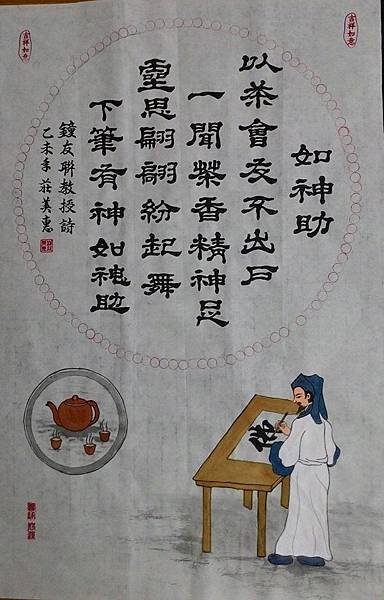 吉祥如意
吉祥如意
如神助
以茶會友不出戶
一聞茶香精神足
靈思翩翩紛起舞
下筆有神如神助
鐘友聯教授詩
乙未年 莊美惠